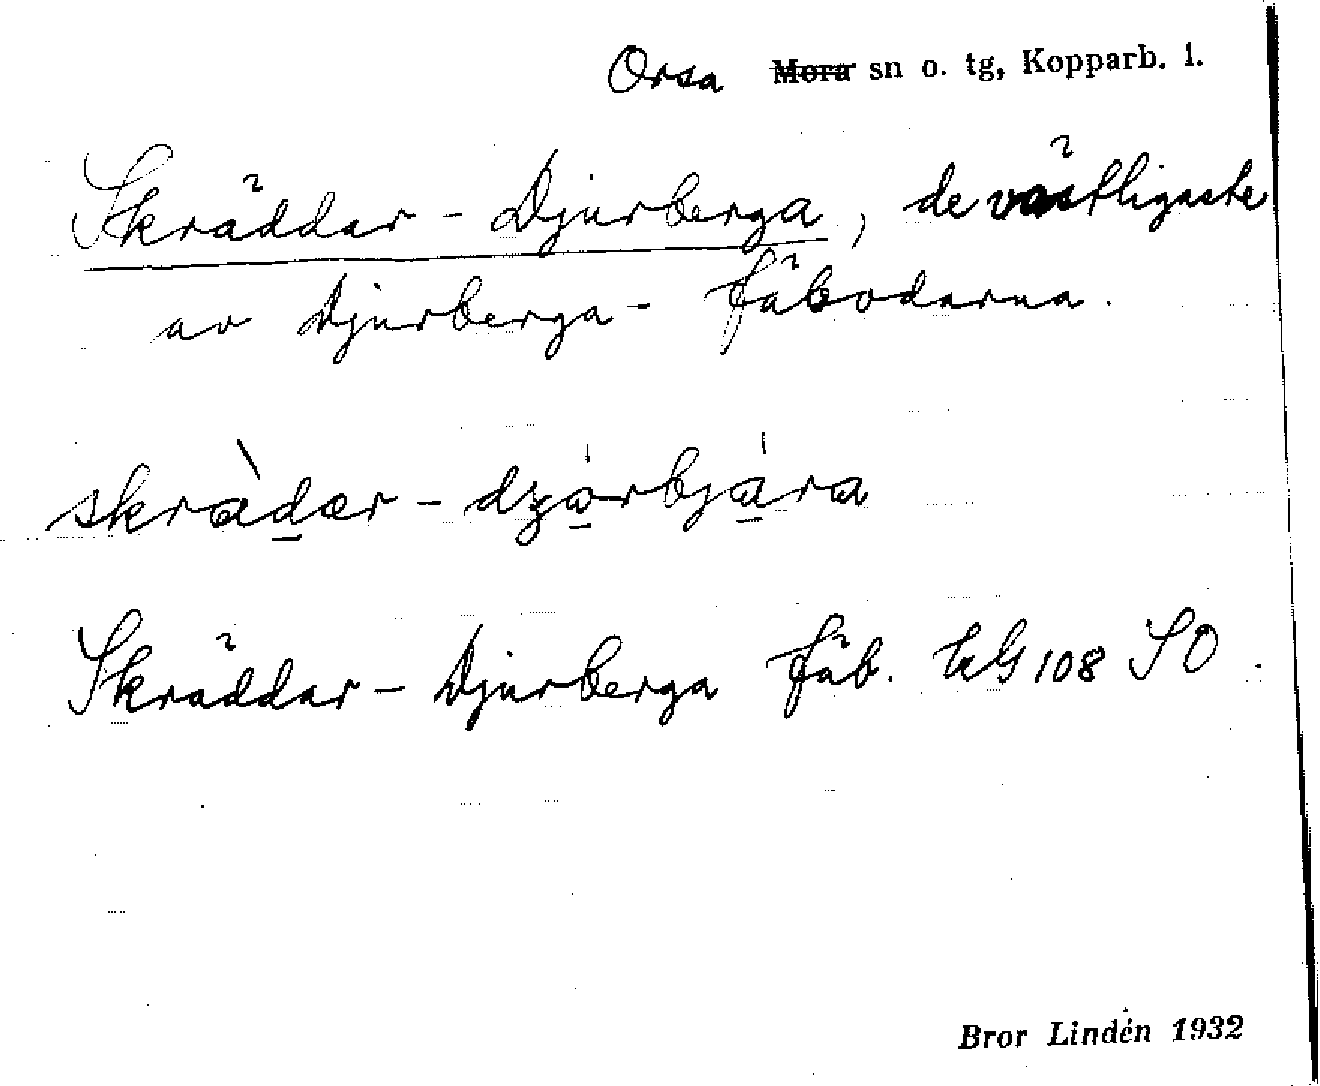 Orsa Mora sn o. tg, Kopparb. l.
Skräddar-Djurberga, de västligaste
av Djurberga-fäbodarna.
skràdær-dzárbjára
Skräddar-Djurberga fäb. 108 SO.
Bror Lindén 1932